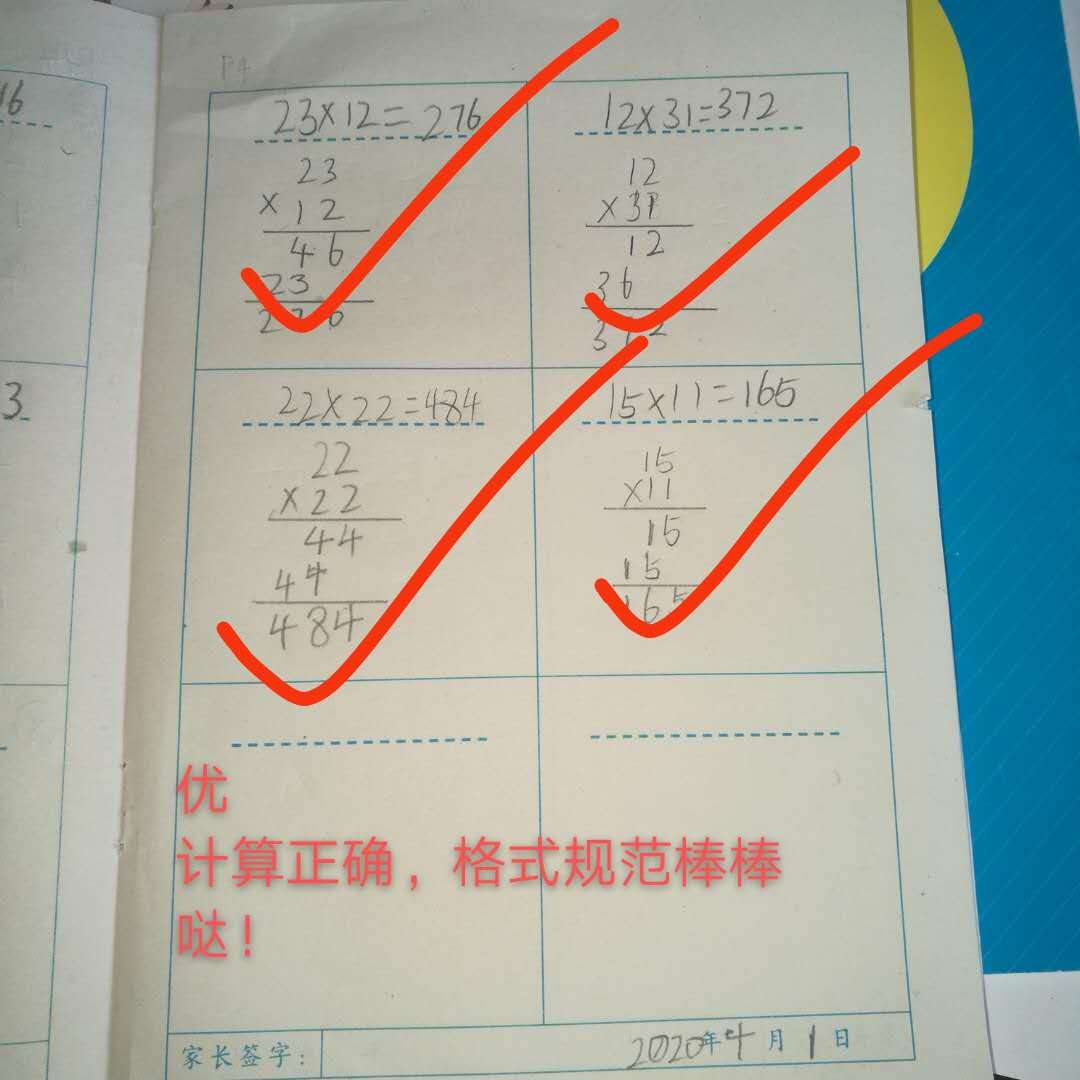 P4
16
3
23×12=276
23
×12
46
23
276
12×31=372
12
×31
12
36
372
22×22=484
22
×22
44
44
484
15×11=165
15
×11
15
15
165
优
计算正确，格式规范棒棒
哒！
家长签字：
2020年4月1日